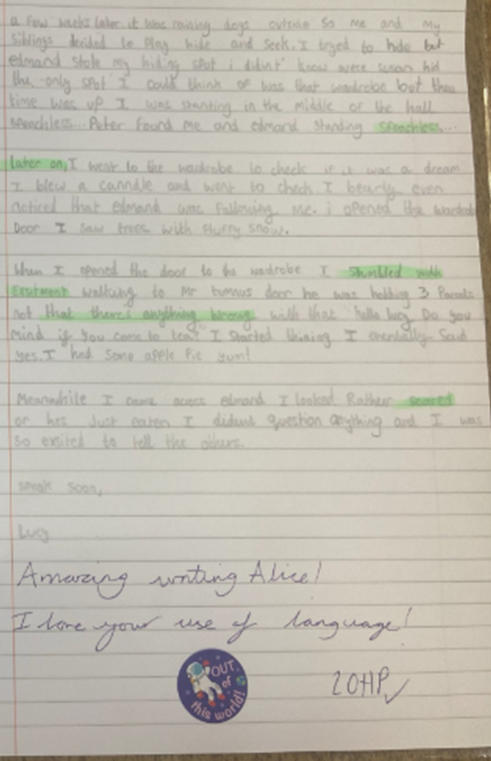 a few weeks later it was raining dogs outside so me and my
siblings decided to play hide and seek. I tryed to hide but
edmand stole my hiding spot i didnt' know were susan hid
the only spot I could think of was that wardrobe but then
time was up I was standing in the middle of the hall
speachless... Peter found me and edmand standing speachless...
Later on, I went to the wardrobe to check if it was a dream
I blew a canndle and went to chech I bearly even
noticed that edmand was following me. i opened the wardrobe
Door I saw trees with fluffy snow.
When I opened the door to the wardrobe I stumbled with
exsitment walking to Mr tumnus door he was holding 3 Parcels
not that there's anything wrong with that "hello lucy Do you
mind if you come to tea" I started thining I eventally Said
yes. I had some apple Pie yum!
Meanwhile I came acess edmand I looked Rather scared
or hes Just eaten I dident question anything and I was
so exsited to tell the others.
speak soon,
Lucy
Amazing writing Alice!
I love your use of language!
OUT
of
this world!
20HP